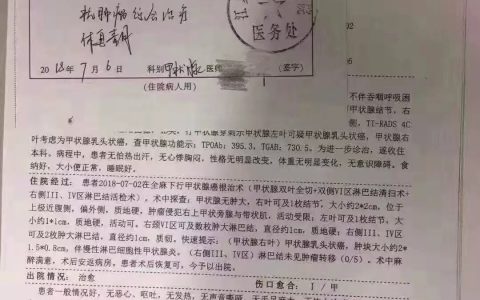 抗肿瘤综合治疗
休息壹月
医务处
2018年7月6日 科别 甲状腺 医师 (签字)
(住院病人用)
不伴吞咽呼吸困
甲状腺结节,右
侧,TI-RADS 4C
行甲状腺穿刺示甲状腺左叶可疑甲状腺乳头状癌,甲状腺右
叶考虑为甲状腺乳头状癌,查甲状腺功能示:TPOAb; 395.3, TGAB; 730.5, 为进一步诊治,遂收住
本科,病程中,患者无怕热出汗,无心悸胸闷,性格无明显改变,体重无明显变化,无意识障碍,食
纳好,大小便正常,睡眠好。
住院经过: 患者2018-07-02在全麻下行甲状腺癌根治术(甲状腺双叶全切+双侧VI区淋巴结清扫术+
右侧III、IV区淋巴结活检术)。术中探查:甲状腺无肿大,右叶可及1枚结节,大小约2*2cm,位于
上极近腹侧,偏外侧,质地硬,肿瘤侵犯右上甲状旁腺与带状肌,活动受限;左叶可及1枚结节,大
小约1*1cm,质地硬,活动可。右颈VI区可及数枚肿大淋巴结,直径约1cm,质地硬;右侧III、IV区
可及2枚肿大淋巴结,直径约1cm,质韧,快速提示:(甲状腺右叶)甲状腺乳头状癌,肿块大小约2*
1.5*0.8cm,伴慢性淋巴细胞性甲状腺炎。(右侧III、IV区)淋巴结未见肿瘤转移(0/5)。术中麻
醉满意,术后安返病房,患者术后恢复可,今予以出院。
出院情况: 治愈 伤口愈合: I / 甲
患者一般情况好,无恶心、呕吐,无发热,无声音嘶哑